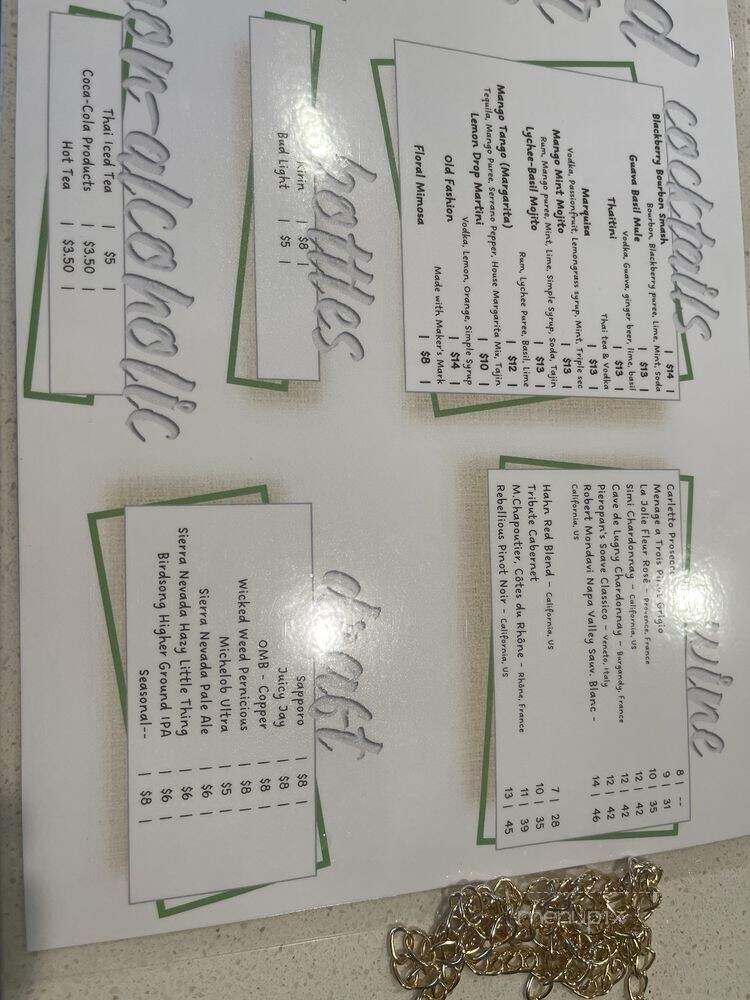 cocktails
Blackberry Bourbon Smash | $14 |
Bourbon, Blackberry puree, Lime, Mint, Soda
Guava Basil Mule | $13 |
Vodka, Guava, ginger beer, lime, basil
Thaitini | $13 |
Thai tea & Vodka
Marquisa | $13 |
Vodka, Passionfruit, Lemongrass syrup, Mint, Triple sec
Mango Mint Mojito | $13 |
Rum, Mango puree, Mint, Lime, Simple Syrup, Soda, Tajin
Lychee-Basil Mojito | $13 |
Rum, Lychee Puree, Basil, Lime
Mango Tango (Margarita) | $12 |
Tequila, Mango Puree, Serrano Pepper, House Margarita Mix, Tajin
Lemon Drop Martini | $10 |
Vodka, Lemon, Orange, Simple Syrup
Old Fashion | $14 |
Made with Maker's Mark
Floral Mimosa | $8 |
bottles
Kirin | $8 |
Bud Light | $5 |
non-alcoholic
Thai Iced Tea | $5 |
Coca-Cola Products | $3.50 |
Hot Tea | $3.50 |
wine
Carletto Prosecco 8 | --
Menage a Trois Pinot Grigio 9 | 31
La Jolie Fleur Rosé - Provence, France 10 | 35
Simi Chardonnay - California, US 12 | 42
Cave de Lugny Chardonnay - Burgandy, France 12 | 42
Pieropan's Soave Classico - Veneto, Italy 12 | 42
Robert Mondavi Napa Valley Sauv. Blanc - 14 | 46
California, US
Hahn Red Blend - California, US 7 | 28
Tribute Cabernet 10 | 35
M.Chapoutier, Côtes du Rhône - Rhône, France 11 | 39
Rebellious Pinot Noir - California, US 13 | 45
draft
Sapporo | $8 |
Juicy Jay | $8 |
OMB - Copper | $8 |
Wicked Weed Pernicious | $8 |
Michelob Ultra | $5 |
Sierra Nevada Pale Ale | $6 |
Sierra Nevada Hazy Little Thing | $6 |
Birdsong Higher Ground IPA | $6 |
Seasonal-- | $8 |
menupix